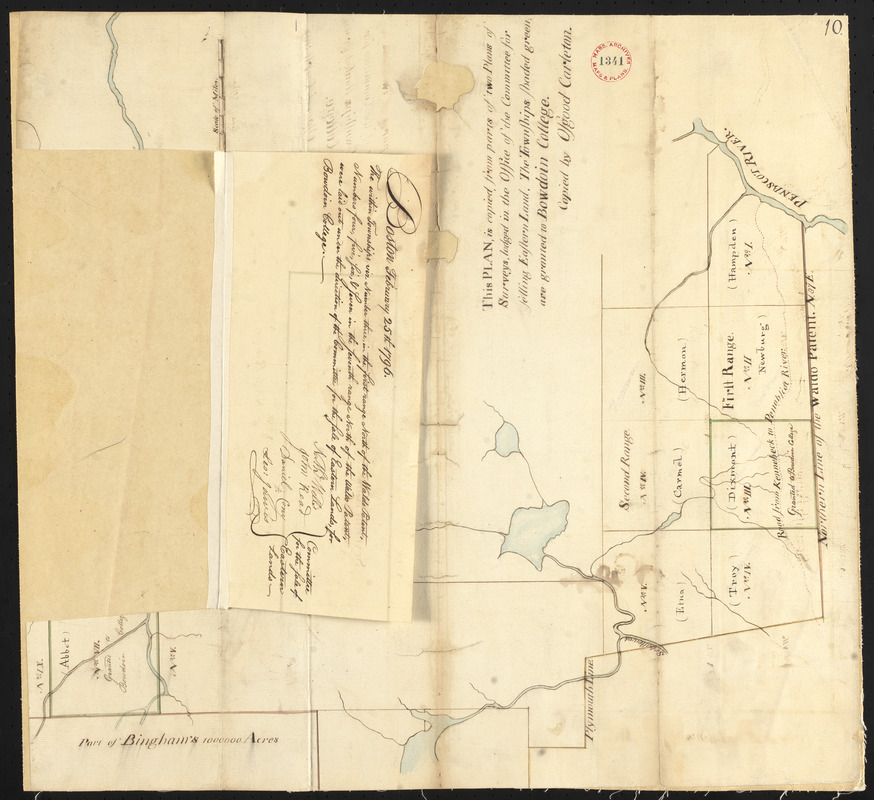 10.
MASS. ARCHIVES
1341
MAPS & PLANS
This PLAN, is copied from parts of two Plans of
Surveys, lodged in the Office of the Committee for
selling Eastern Land, The Townships shaded green,
are granted to Bowdoin College.
Copied by Osgood Carleton.
Scale of Miles
Boston February 25th 1796.
The within Townships viz Number three in the first range North of the Waldo Patent,
Numbers four, five, six, & seven in the seventh range North of the Waldo Patent,
were laid out under the direction of the Committee for the sale of Eastern Lands, for
Bowdoin College.
Nath Wells
John Read
Daniel Cony
Leo Jarvis
Committee
for the sale of
Eastern
Lands
PENOBSCOT RIVER.
(Hampden)
No I.
(Hermon)
No III.
First Range.
No II
(Newburg)
Second Range
No IV.
(Carmel)
(Dixmont)
No III.
Road from Kennebeck to Penobscot River
Granted to Bowdoin College
Northern Line of the Waldo Patent.
No V.
(Etna)
(Troy)
No IV.
Plymouth Line
No IX.
(Abbot)
No VII.
Granted to
Bowdoin College
No V.
Part of Bingham's 1000000 Acres